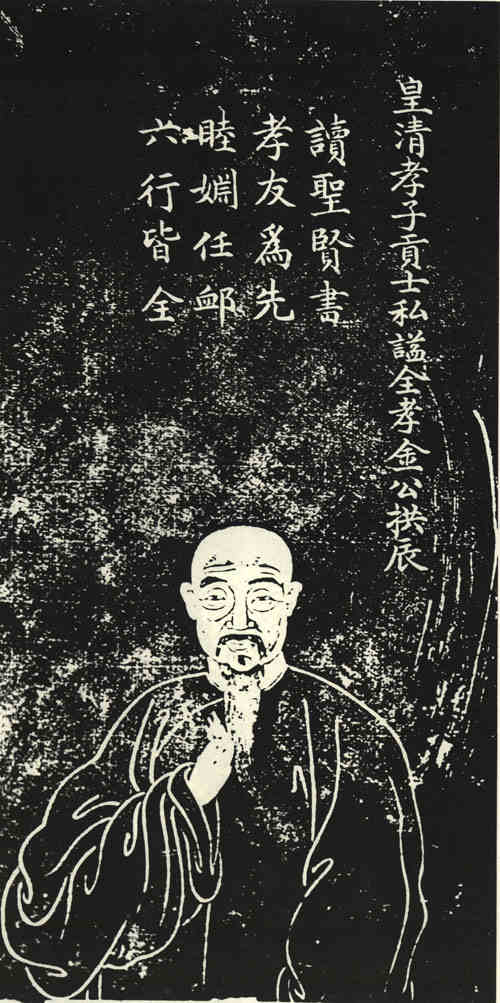 皇清孝子貢士私謚全孝金公拱辰
讀聖賢書
孝友爲先
睦婣任卹
六行皆全